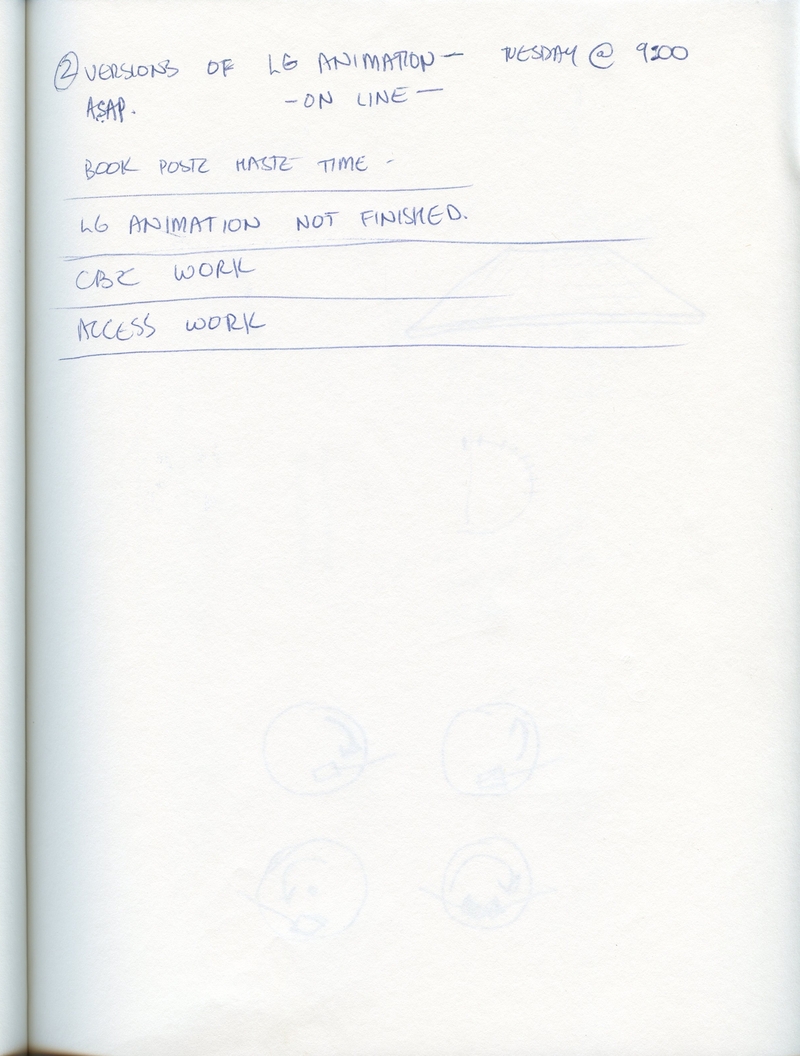 ② VERSIONS OF LG ANIMATION — TUESDAY @ 9:00
ASAP. - ON LINE —
BOOK POSTE HASTE TIME -
LG ANIMATION NOT FINISHED.
WORK
ACCESS WORK